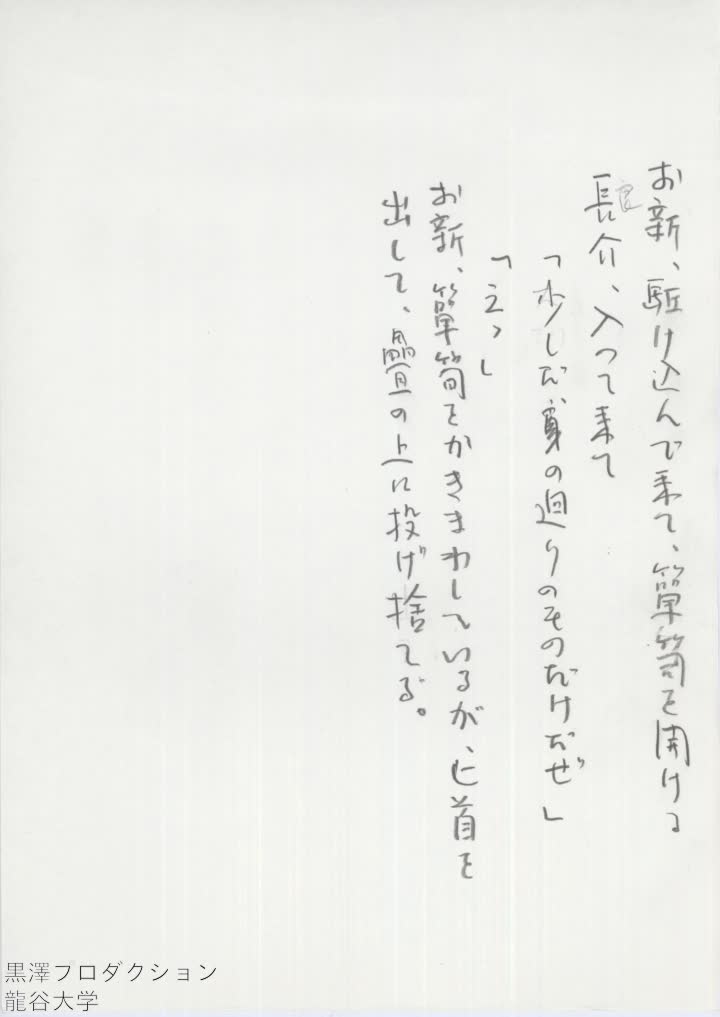 お新、駈け込んで来て、箪笥を開ける
長介、入つて来て
良
「少しだ、身の廻りのものだけだぜ」
「えゝ」
お新、箪笥をかきまわしているが、匕首を
出して、畳の上に投げ捨てる。
黒澤プロダクション
龍谷大学